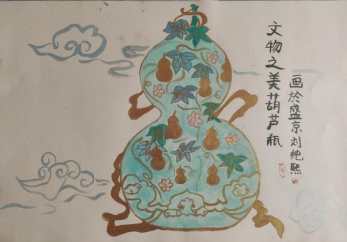 文物之美葫芦瓶
画於盛京刘纯熙